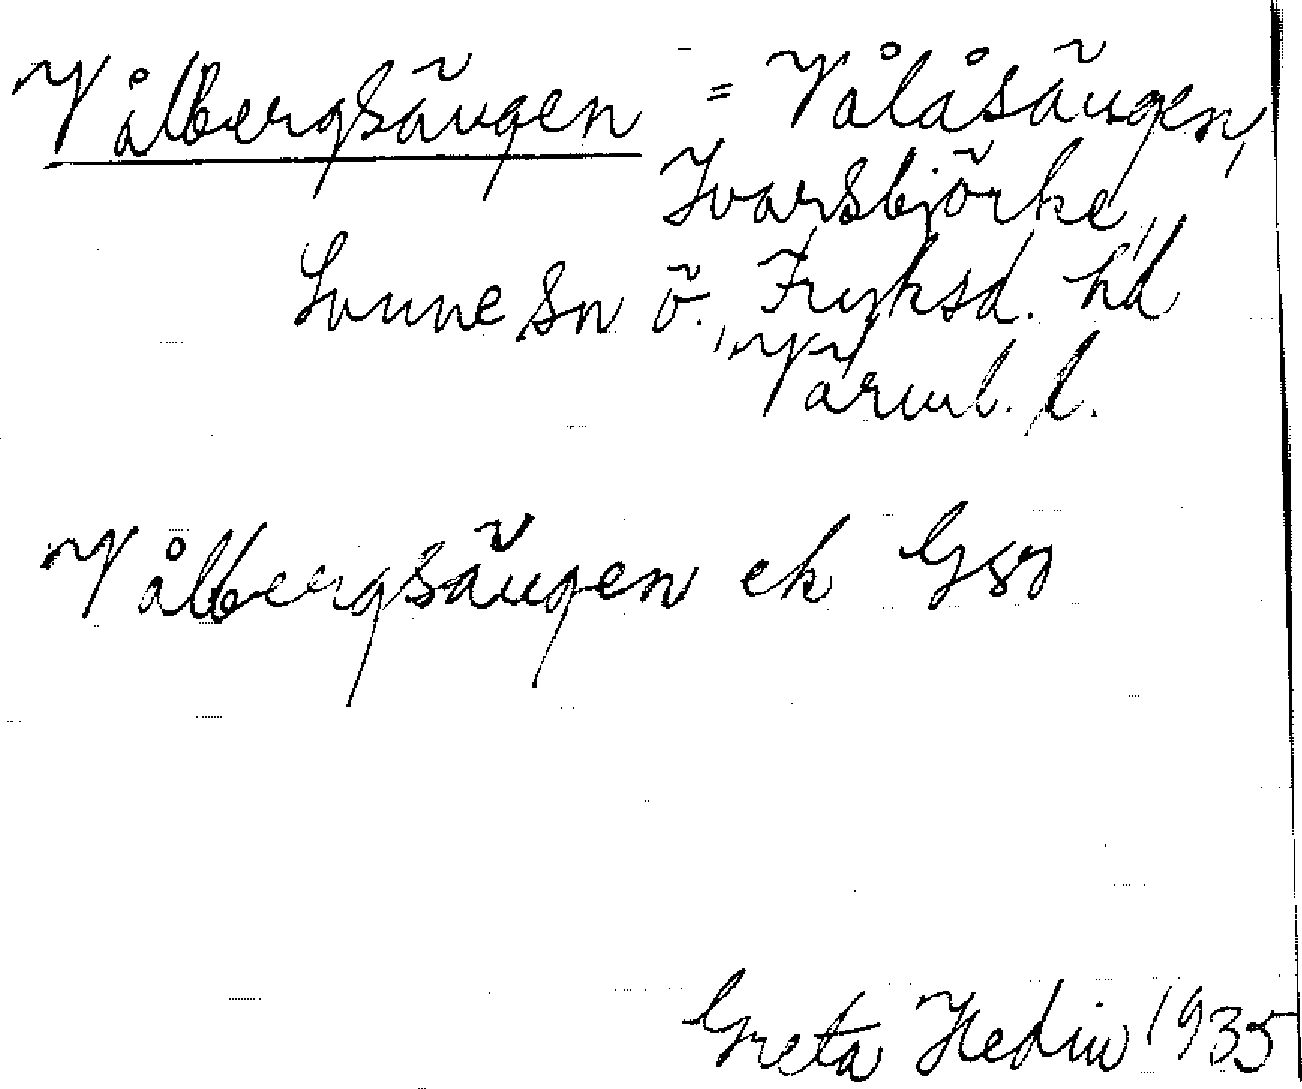 Vålbergsängen = Vålåsängen,
Ivarsbjörke,
Sunne sn Ö. Fryksd. hd
Värml. l.
Vålbergsängen ek Gso
Greta Hedin 1935